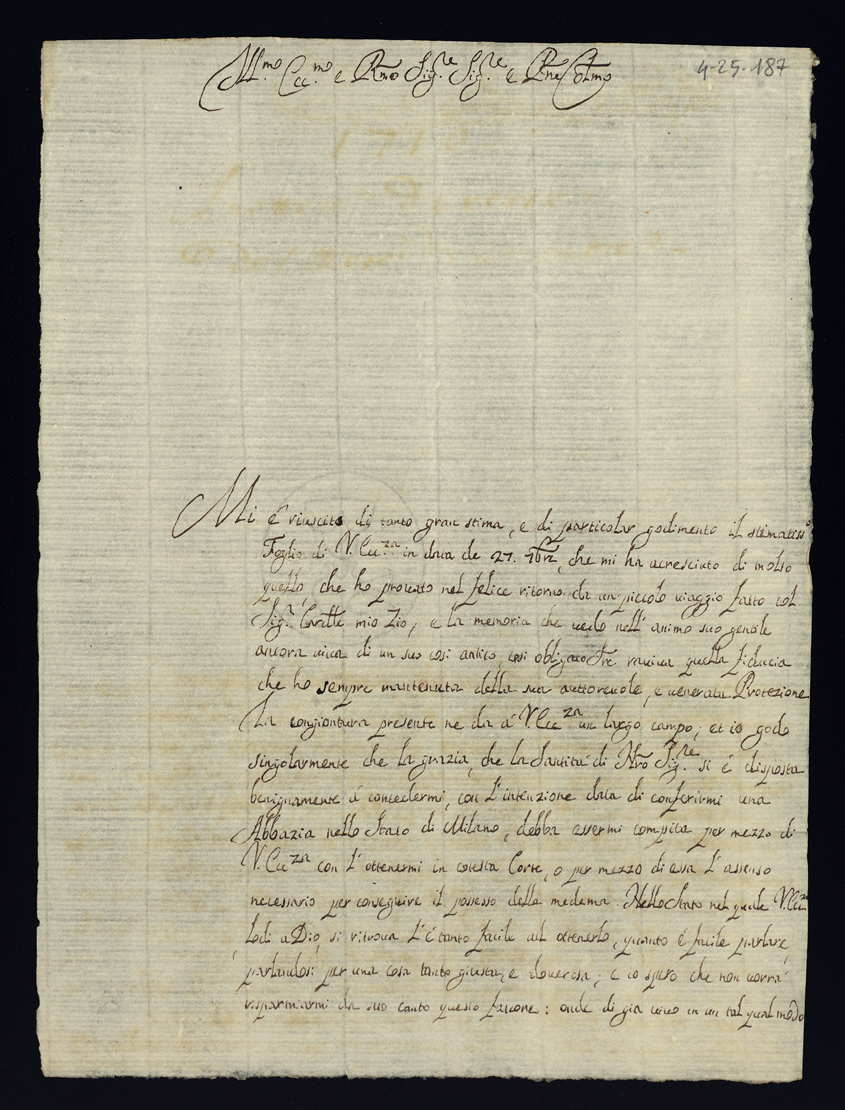 Ill.mo Ecc.mo e Rmo Sig.re Sig.re e Pne Colmo
4-25-187
1710
Mi é riuscito di tanto gran stima, e di particolar godimento il stimatiss.o
Foglio di V. Ecc.za in data de 27. 9bre, che mi ha acresciuto di molto
quello, che ho provato nel felice ritorno da un piccolo viaggio fatto col
Sig.r Cardle mio Zio, e la memoria che vedo nell' animo suo gentile
ancora viva di un suo cosi antico, cosi obligato Sre raviva quella fiducia
che ho sempre mantenuta della sua autorevole, e venerata Protezione
La congiontura presente ne da á V. Ecc.za un largo campo; et io godo
singolarmente che la grazia, che la Santitá di Nro Sig.re si é disposta
benignamente á concedermi, con l' intenzione data di conferirmi una
Abbazia nello Stato di Milano, debba essermi compita per mezo di
V. Ecc.za con l' ottenermi in cotesta Corte, o per mezzo di essa l' assenso
necessario per conseguire il possesso della medema. Nello Stato nel quale V. Ecc.za
lodi a Dio, si ritrova l' é tanto facile ad ottenerlo, quanto é facile parlare,
parlandosi per una cosa tanto giusta, e doverosa; e io spero che non vorrá
risparmiarmi da suo canto questo favore: onde di gia vivo in un tal qual modo